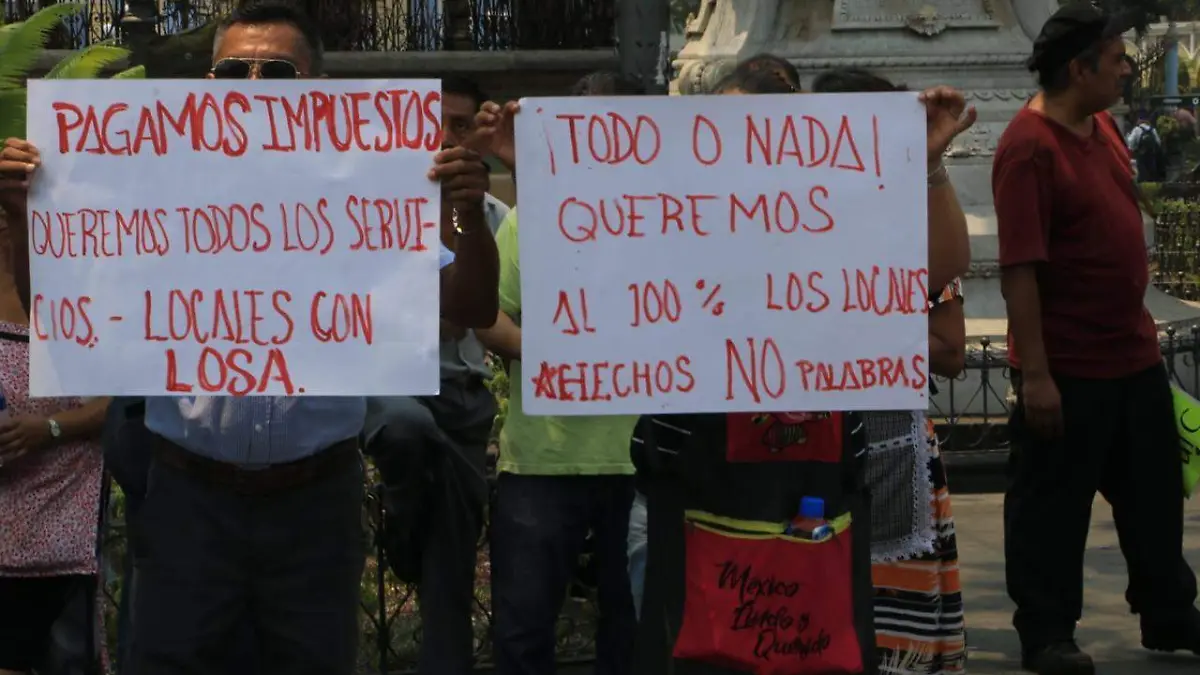 PAGAMOS IMPUESTOS
QUEREMOS TODOS LOS SERVI-
CIOS.- LOCALES CON
LOSA.
¡TODO O NADA!
QUEREMOS
AL 100% LOS LOCALES
HECHOS NO PALABRAS
México
Lindo y
Querido